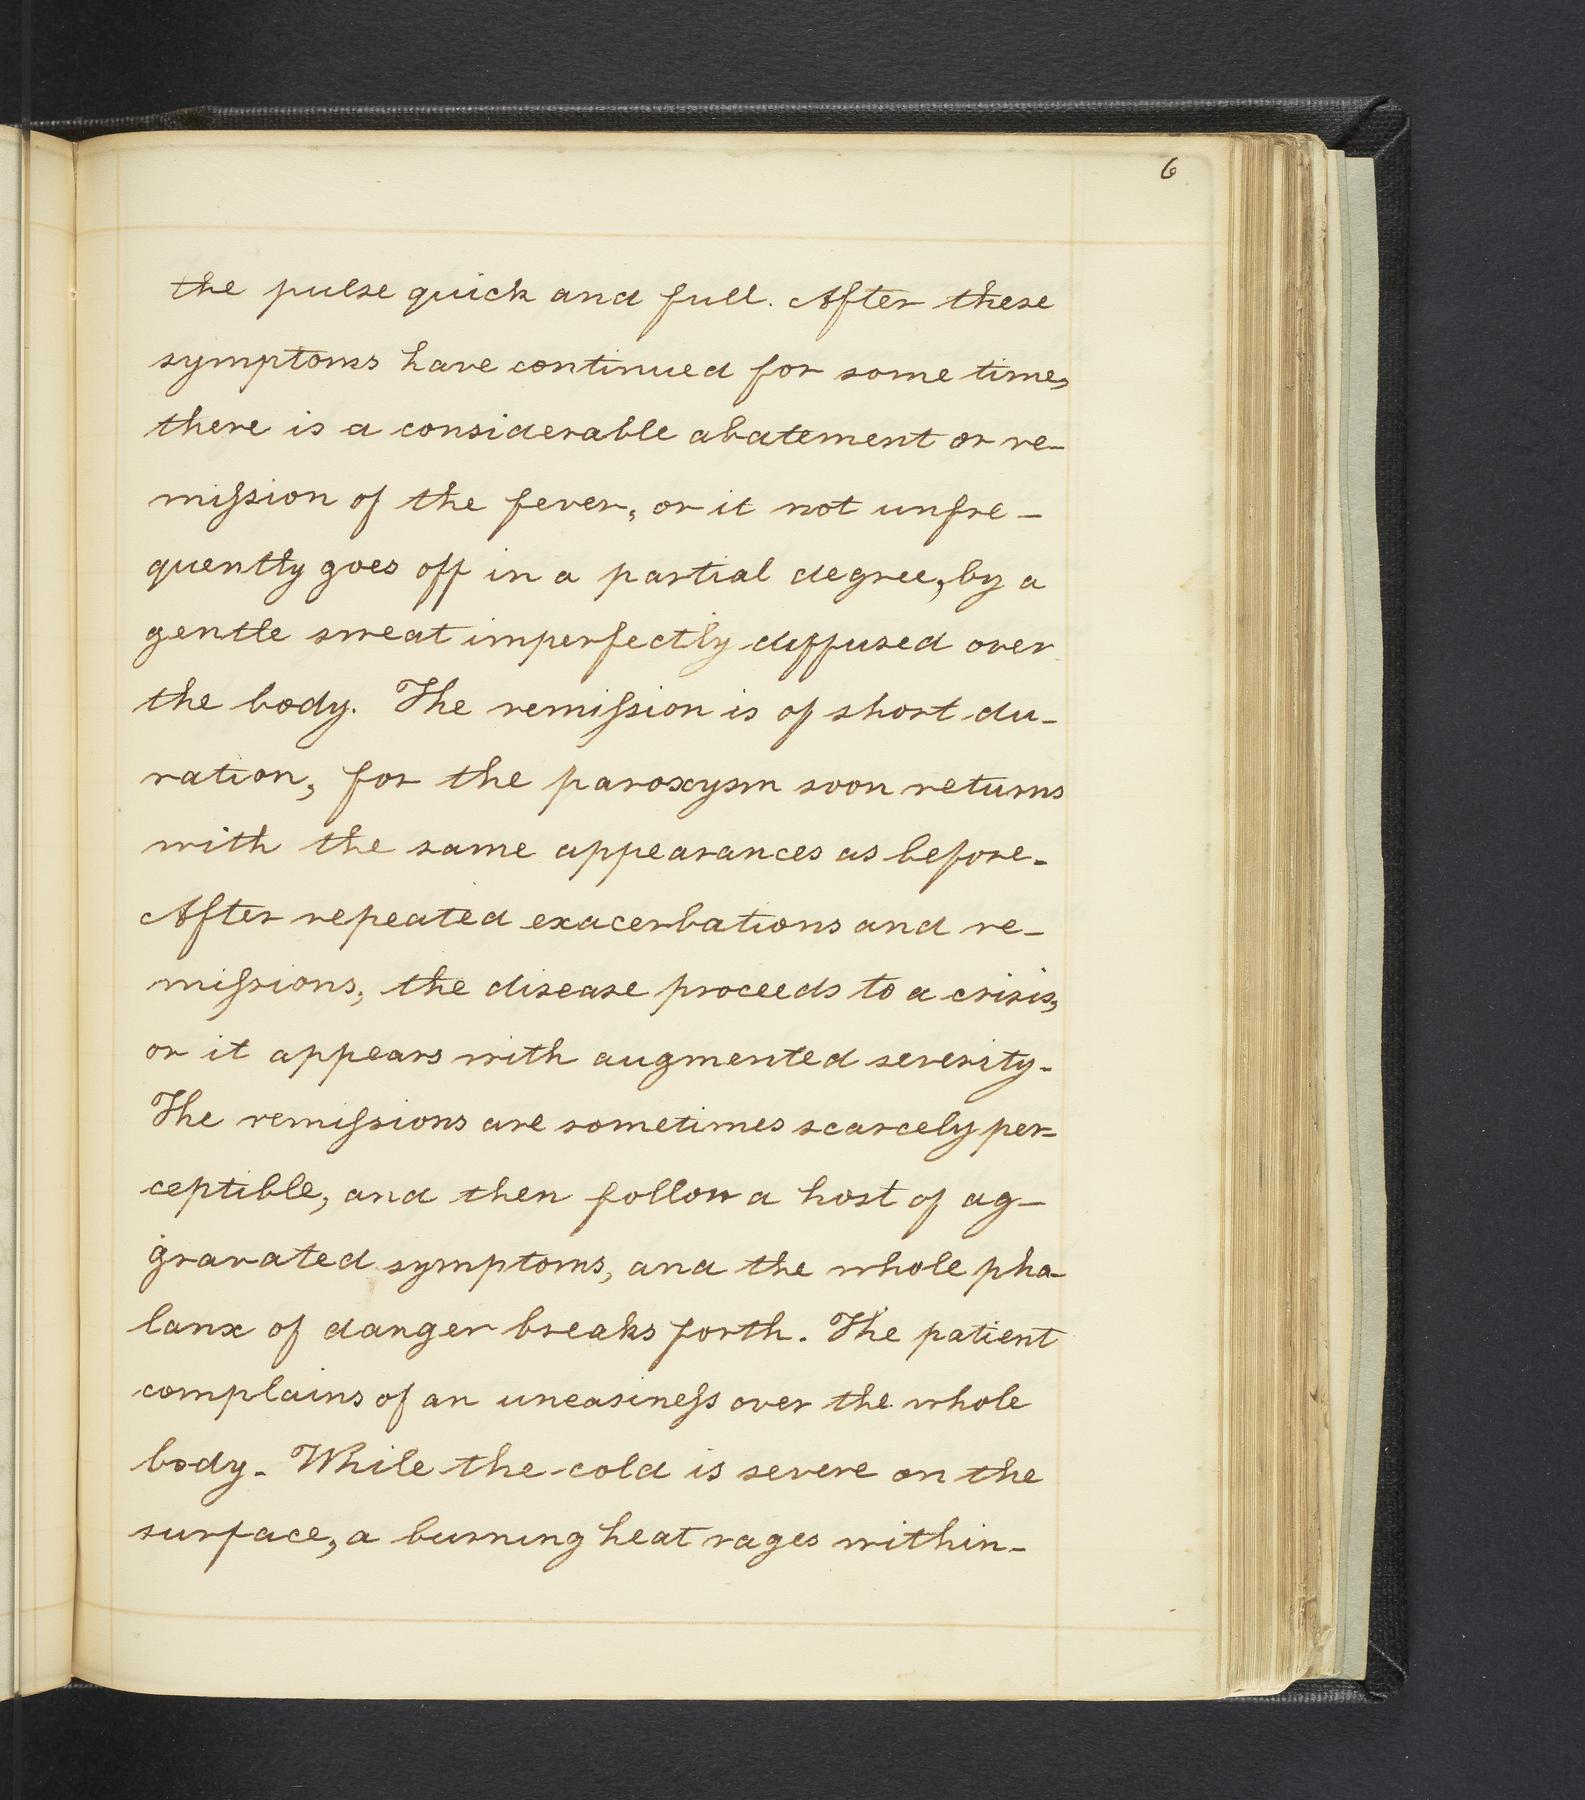 6
the pulse quick and full. After these
symptoms have continued for some time,
there is a considerable abatement or re-
mission of the fever, or it not unfre-
quently goes off in a partial degree, by a
gentle sweat imperfectly diffused over
the body. The remission is of short du-
ration, for the paroxysm soon returns
with the same appearances as before.
After repeated exacerbations and re-
missions, the disease proceeds to a crisis,
or it appears with augmented severity.
The remissions are sometimes scarcely per-
ceptible, and then follow a host of ag-
gravated symptoms, and the whole pha-
lanx of danger breaks forth. The patient
complains of an uneasiness over the whole
body. While the cold is severe on the
surface, a burning heat rages within.